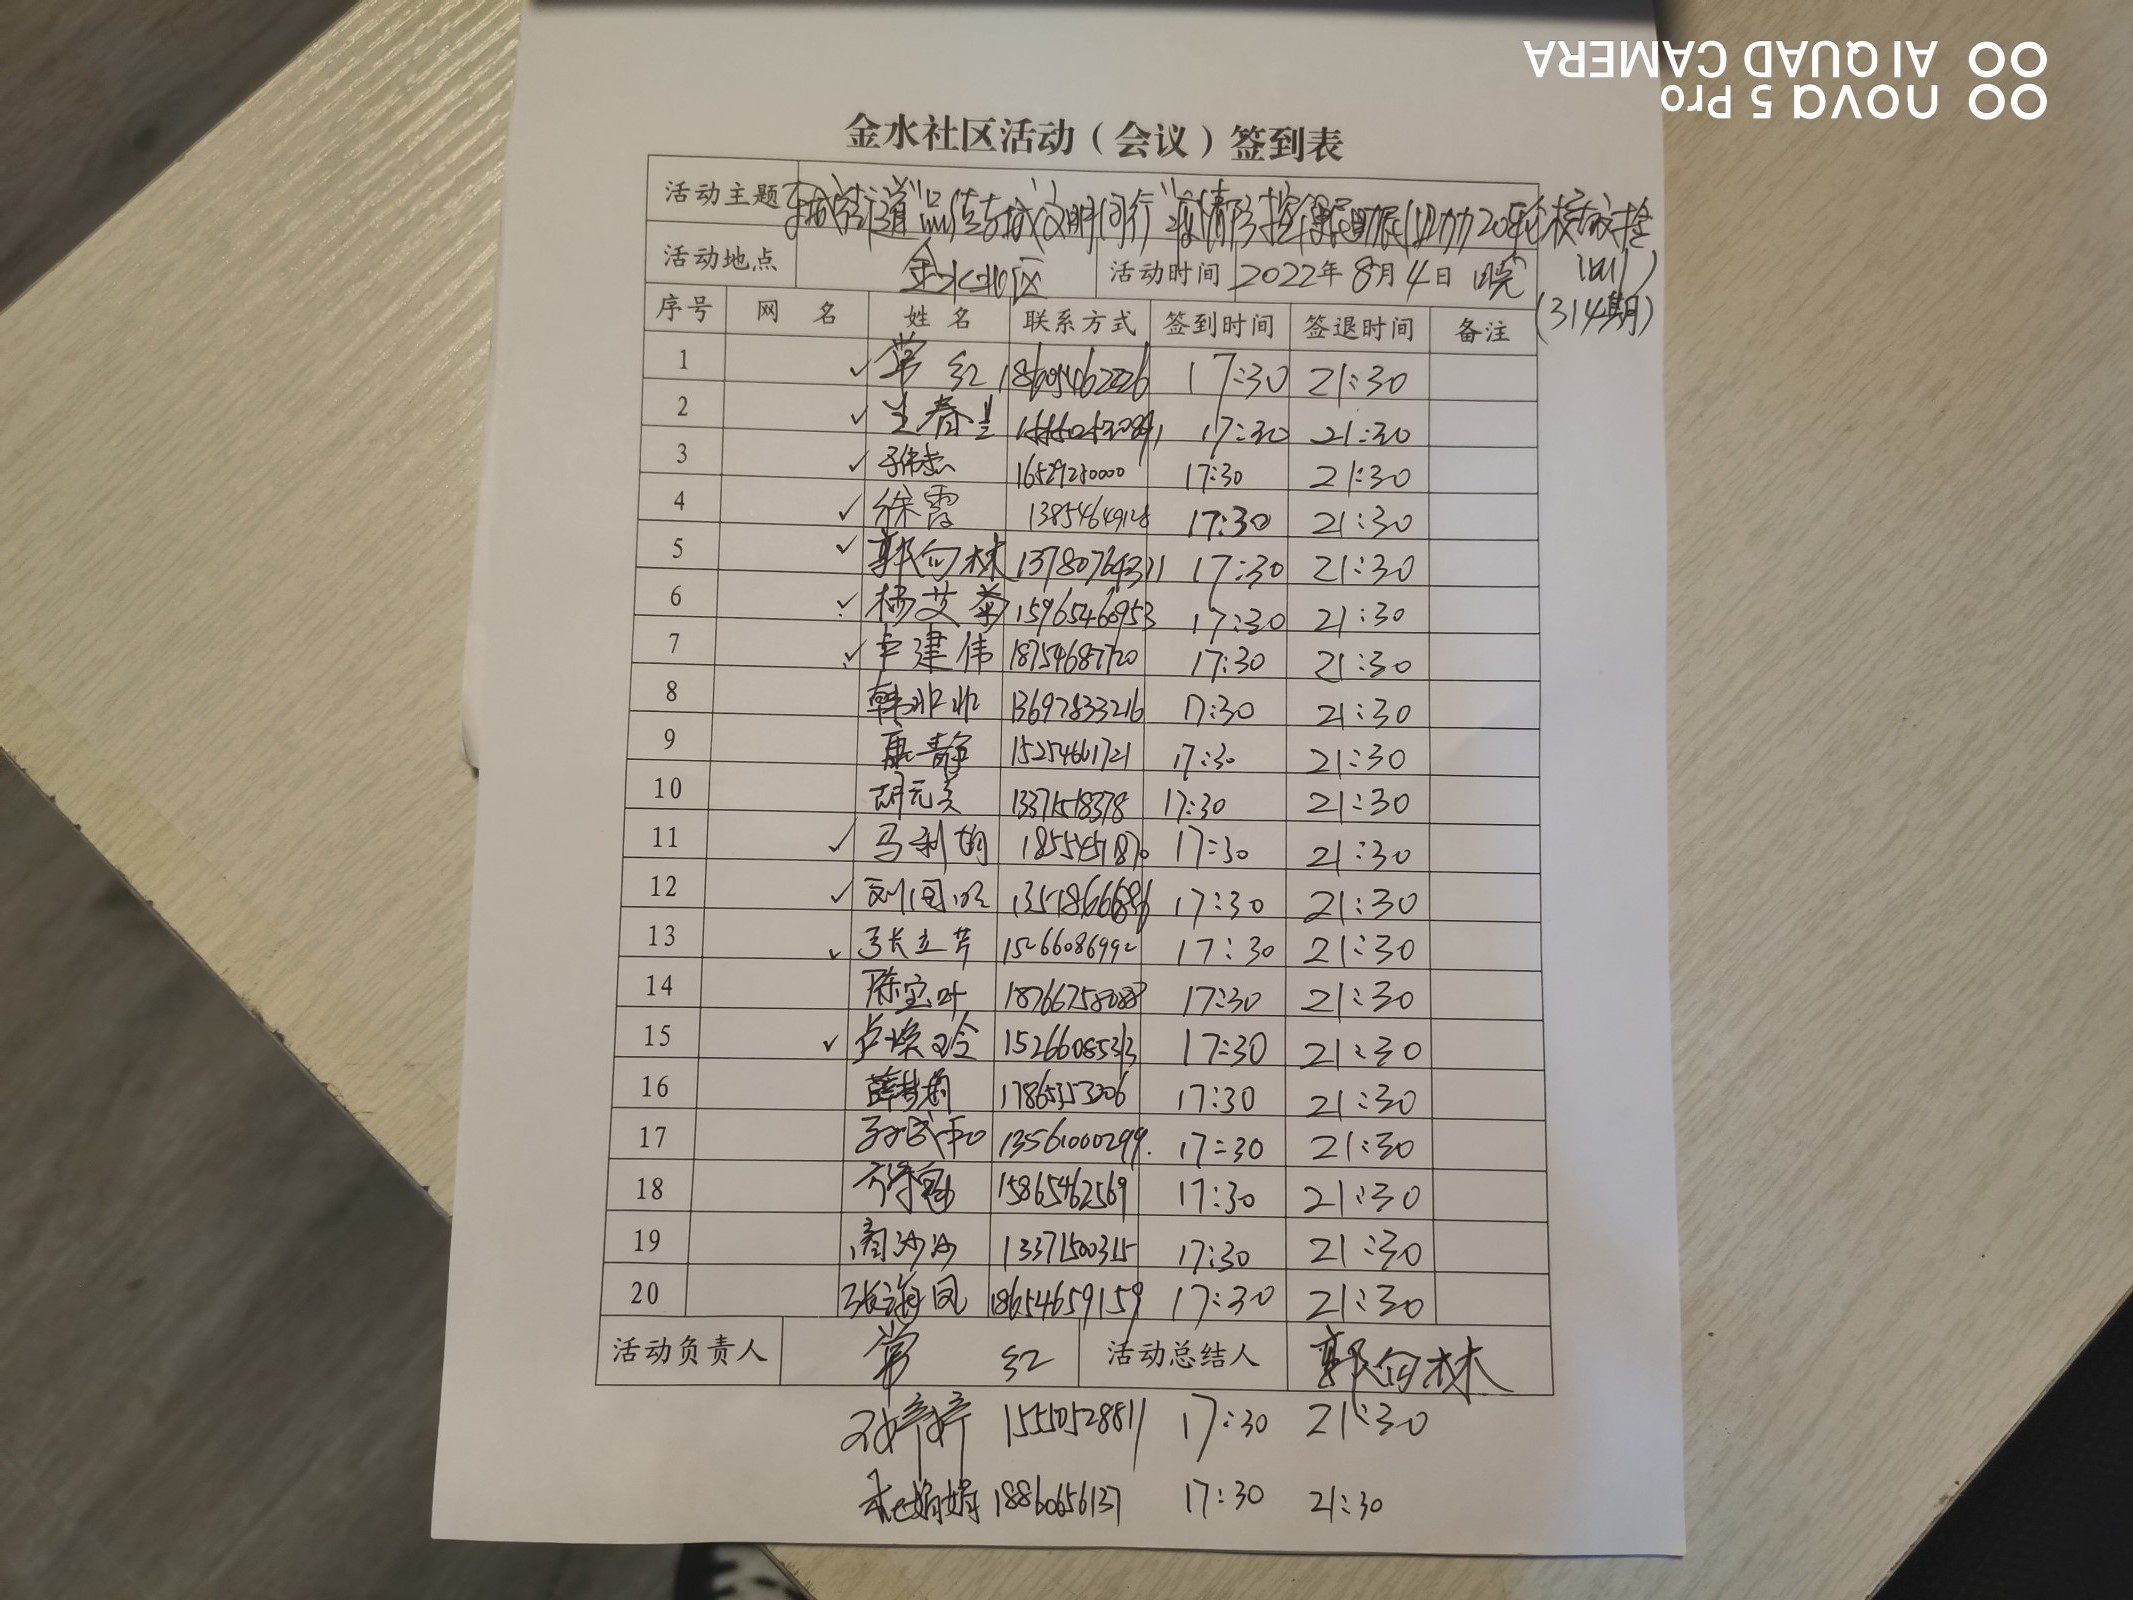 金水社区活动（会议）签到表
活动主题 东城街道"品传古城 文明同行"疫情防控 20轮核酸检
活动地点 金水社区 活动时间 2022年8月4日 晚
(314期)
序号 网名 姓名 联系方式 签到时间 签退时间 备注
1 ✓ 常红 17:30 21:30
2 ✓ 17:30 21:30
3 ✓ 16529280000 17:30 21:30
4 ✓ 徐霞 13854649128 17:30 21:30
5 ✓ 郭向林 13780764311 17:30 21:30
6 ✓ 杨艾菊 15965460953 17:30 21:30
7 ✓ 卢建伟 18754687720 17:30 21:30
8 韩非非 13697833216 17:30 21:30
9 康静 15254601721 17:30 21:30
10 胡元美 13371518378 17:30 21:30
11 ✓ 马利娟 17:30 21:30
12 ✓ 17:30 21:30
13 ✓ 张立芹 15266086992 17:30 21:30
14 陈宝叶 17:30 21:30
15 ✓ 15266085313 17:30 21:30
16 17865353206 17:30 21:30
17 13561000299. 17:30 21:30
18 15865462569 17:30 21:30
19 商沙沙 13371500315 17:30 21:30
20 张海凤 18654659159 17:30 21:30
活动负责人 常红 活动总结人 郭向林
孙婷婷 15550528811 17:30 21:30
杜娟娟 18860656137 17:30 21:30
nova 5 Pro
AI QUAD CAMERA